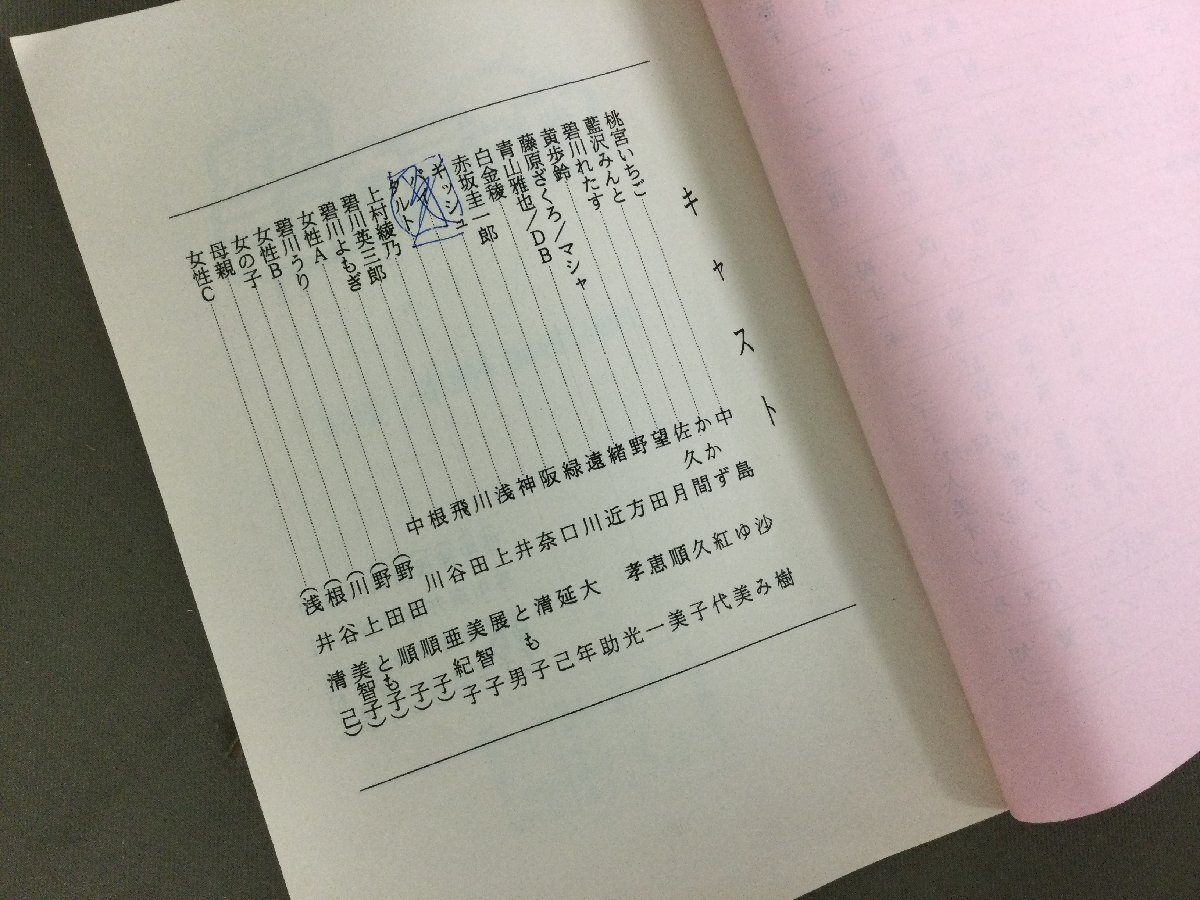 キャスト
桃宮いちご………中島沙樹
藍沢みんと………かかずゆみ
碧川れたす………佐久間紅美
黄歩鈴………望月久代
藤原ざくろ/マシャ………野田順子
青山雅也/DB………緒方恵美
白金稜………遠近孝一
赤坂圭一郎………緑川光
キッシュ………阪口大助
パイ………神奈延年
タルト………浅井清己
上村綾乃………川上とも子
碧川英三郎………飛田展男
碧川よもぎ………根谷美智子
女性A………中川亜紀子
碧川うり………(野田順子)
女性B………(野田順子)
女の子………(川上とも子)
母親………(根谷美智子)
女性C………(浅井清己)